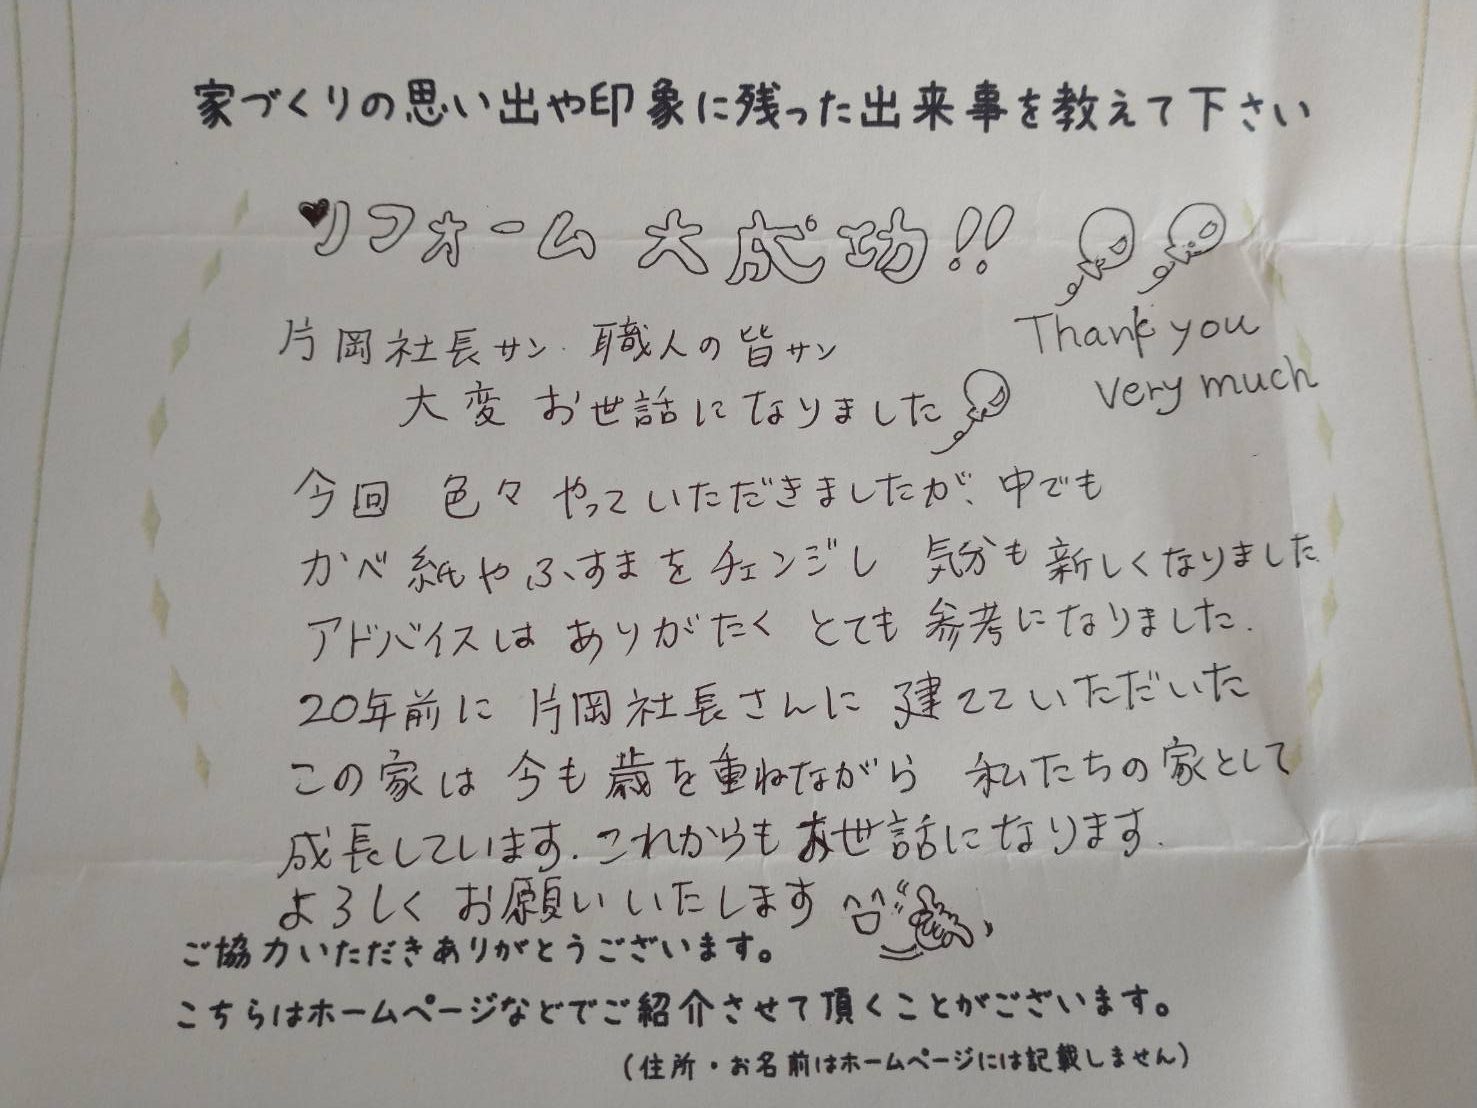 家づくりの思い出や印象に残った出来事を教えて下さい
リフォーム 大成功!!
片岡社長サン 職人の皆サン
大変 お世話になりました
Thank you
very much
今回 色々 やっていただきましたが、中でも
かべ紙やふすまをチェンジし 気分も新しくなりました
アドバイスは ありがたく とても参考になりました.
20年前に 片岡社長さんに 建てていただいた
この家は 今も歳を重ねながら 私たちの家として
成長しています. これからもお世話になります.
よろしく お願いいたします
ご協力いただきありがとうございます。
こちらはホームページなどでご紹介させて頂くことがございます。
(住所・お名前はホームページには記載しません)